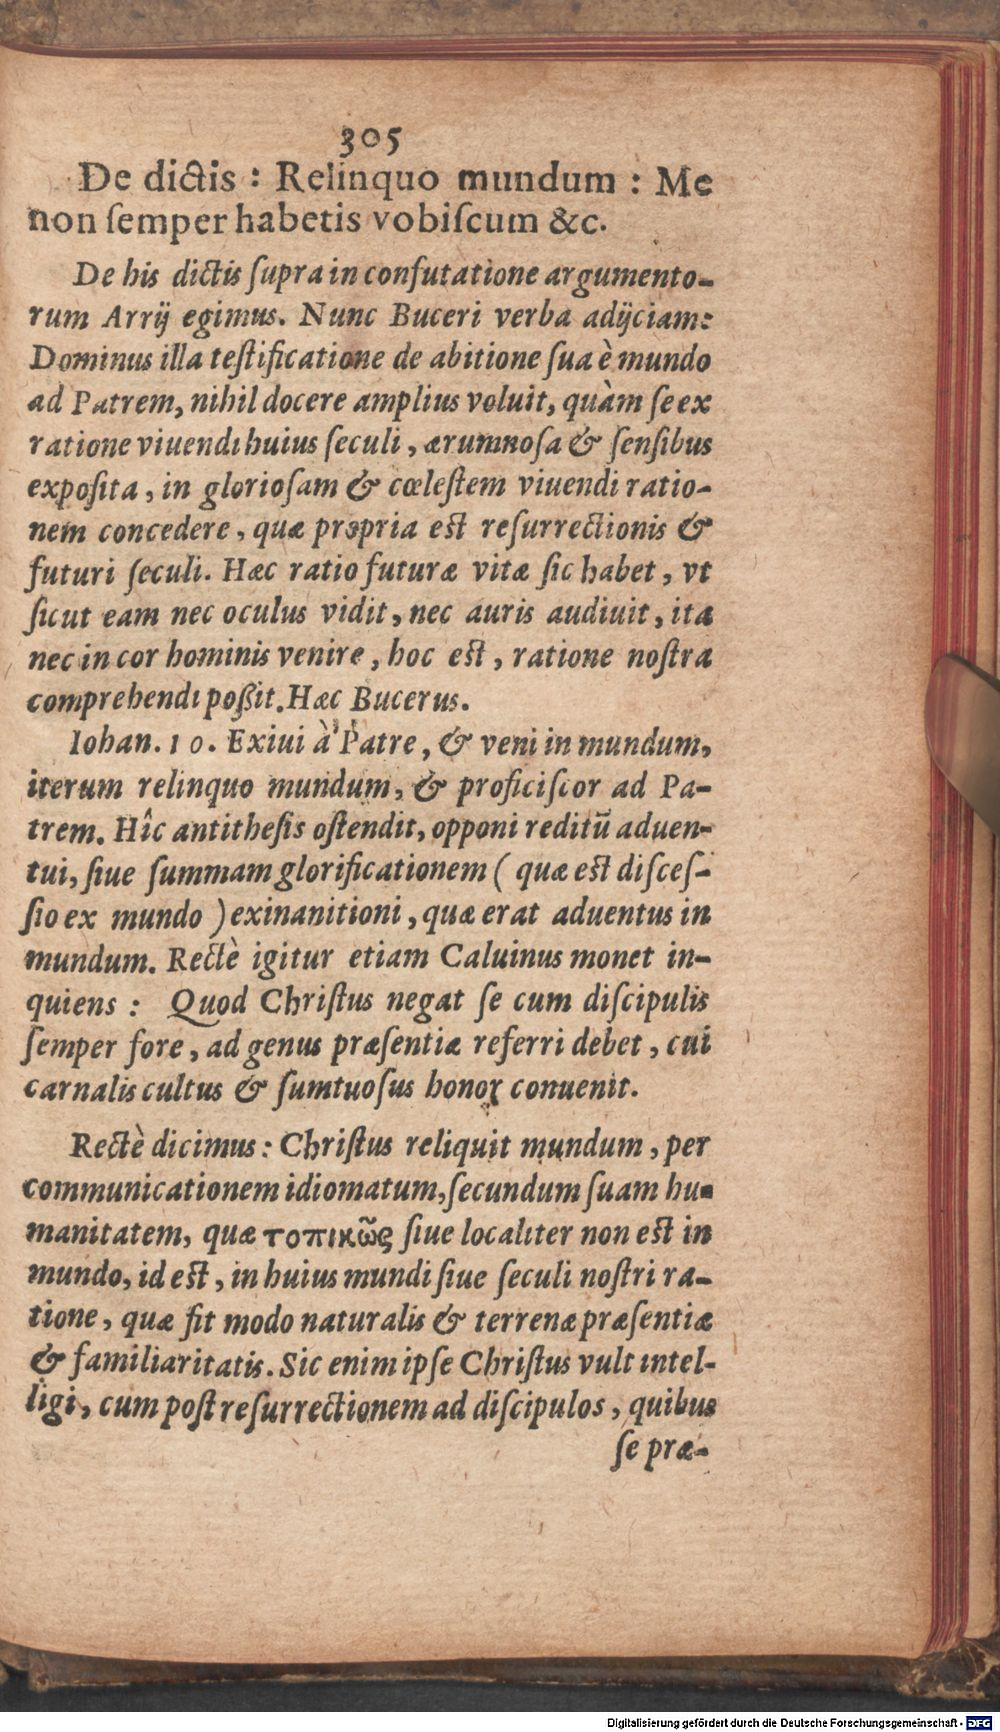 305
De dictis : Relinquo mundum : Me
non ſemper habetis vobiſcum &c.
De his dictis ſupra in confutatione argumento-
rum Arrij egimus. Nunc Buceri verba adijciam:
Dominus illa teſtificatione de abitione ſua è mundo
ad Patrem, nihil docere amplius voluit, quàm ſe ex
ratione viuendi huius ſeculi, ærumnoſa & ſenſibus
expoſita, in glorioſam & cœleſtem viuendi ratio-
nem concedere, quæ propria est reſurrectionis &
futuri ſeculi. Hæc ratio futuræ vitæ ſic habet, vt
ſicut eam nec oculus vidit, nec auris audiuit, ita
nec in cor hominis venire, hoc est, ratione noſtra
comprehendi poßit. Hæc Bucerus.
Iohan. 10. Exiui à Patre, & veni in mundum,
iterum relinquo mundum, & proficiſcor ad Pa-
trem. Hîc antitheſis oſtendit, opponi reditũ aduen-
tui, ſiue ſummam glorificationem ( quæ est diſceſ-
ſio ex mundo ) exinanitioni, quæ erat aduentus in
mundum. Rectè igitur etiam Caluinus monet in-
quiens : Quod Chriſtus negat ſe cum diſcipulis
ſemper fore, ad genus præſentiæ referri debet, cui
carnalis cultus & ſumtuoſus honor conuenit.
Rectè dicimus: Chriſtus reliquit mundum, per
communicationem idiomatum, ſecundum ſuam hu-
manitatem, quæ τοπικῶς ſiue localiter non est in
mundo, id est, in huius mundi ſiue ſeculi noſtri ra-
tione, quæ fit modo naturalis & terrenæ præſentiæ
& familiaritatis. Sic enim ipſe Chriſtus vult intel-
ligi, cum poſt reſurrectionem ad diſcipulos, quibus
ſe præ-
Digitalisierung gefördert durch die Deutsche Forschungsgemeinschaft - DFG